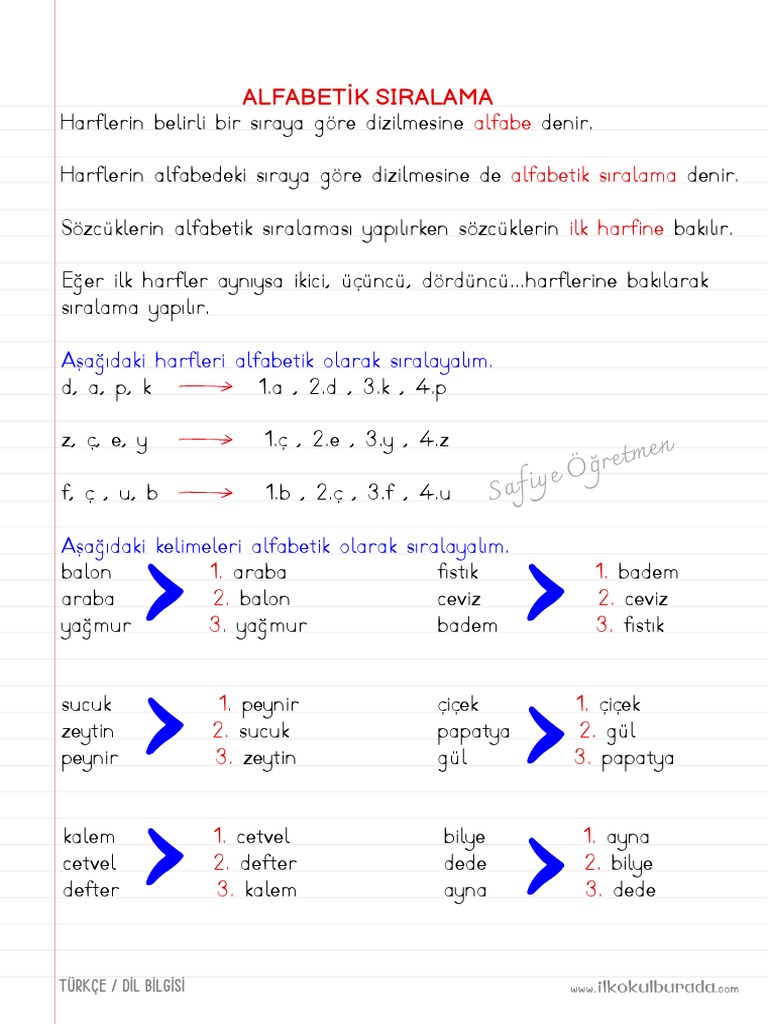 ALFABETİK SIRALAMA
Harflerin belirli bir sıraya göre dizilmesine alfabe denir.
Harflerin alfabedeki sıraya göre dizilmesine de alfabetik sıralama denir.
Sözcüklerin alfabetik sıralaması yapılırken sözcüklerin ilk harfine bakılır.
Eğer ilk harfler aynıysa ikici, üçüncü, dördüncü...harflerine bakılarak
sıralama yapılır.
Aşağıdaki harfleri alfabetik olarak sıralayalım.
d, a, p, k 1.a , 2.d , 3.k , 4.p
z, ç, e, y 1.ç , 2.e , 3.y , 4.z
f, ç , u, b 1.b , 2.ç , 3.f , 4.u
Safiye Öğretmen
Aşağıdaki kelimeleri alfabetik olarak sıralayalım.
balon 1. araba fıstık 1. badem
araba 2. balon ceviz 2. ceviz
yağmur 3. yağmur badem 3. fıstık
sucuk 1. peynir çiçek 1. çiçek
zeytin 2. sucuk papatya 2. gül
peynir 3. zeytin gül 3. papatya
kalem 1. cetvel bilye 1. ayna
cetvel 2. defter dede 2. bilye
defter 3. kalem ayna 3. dede
TÜRKÇE / DİL BİLGİSİ www.ilkokulburada.com